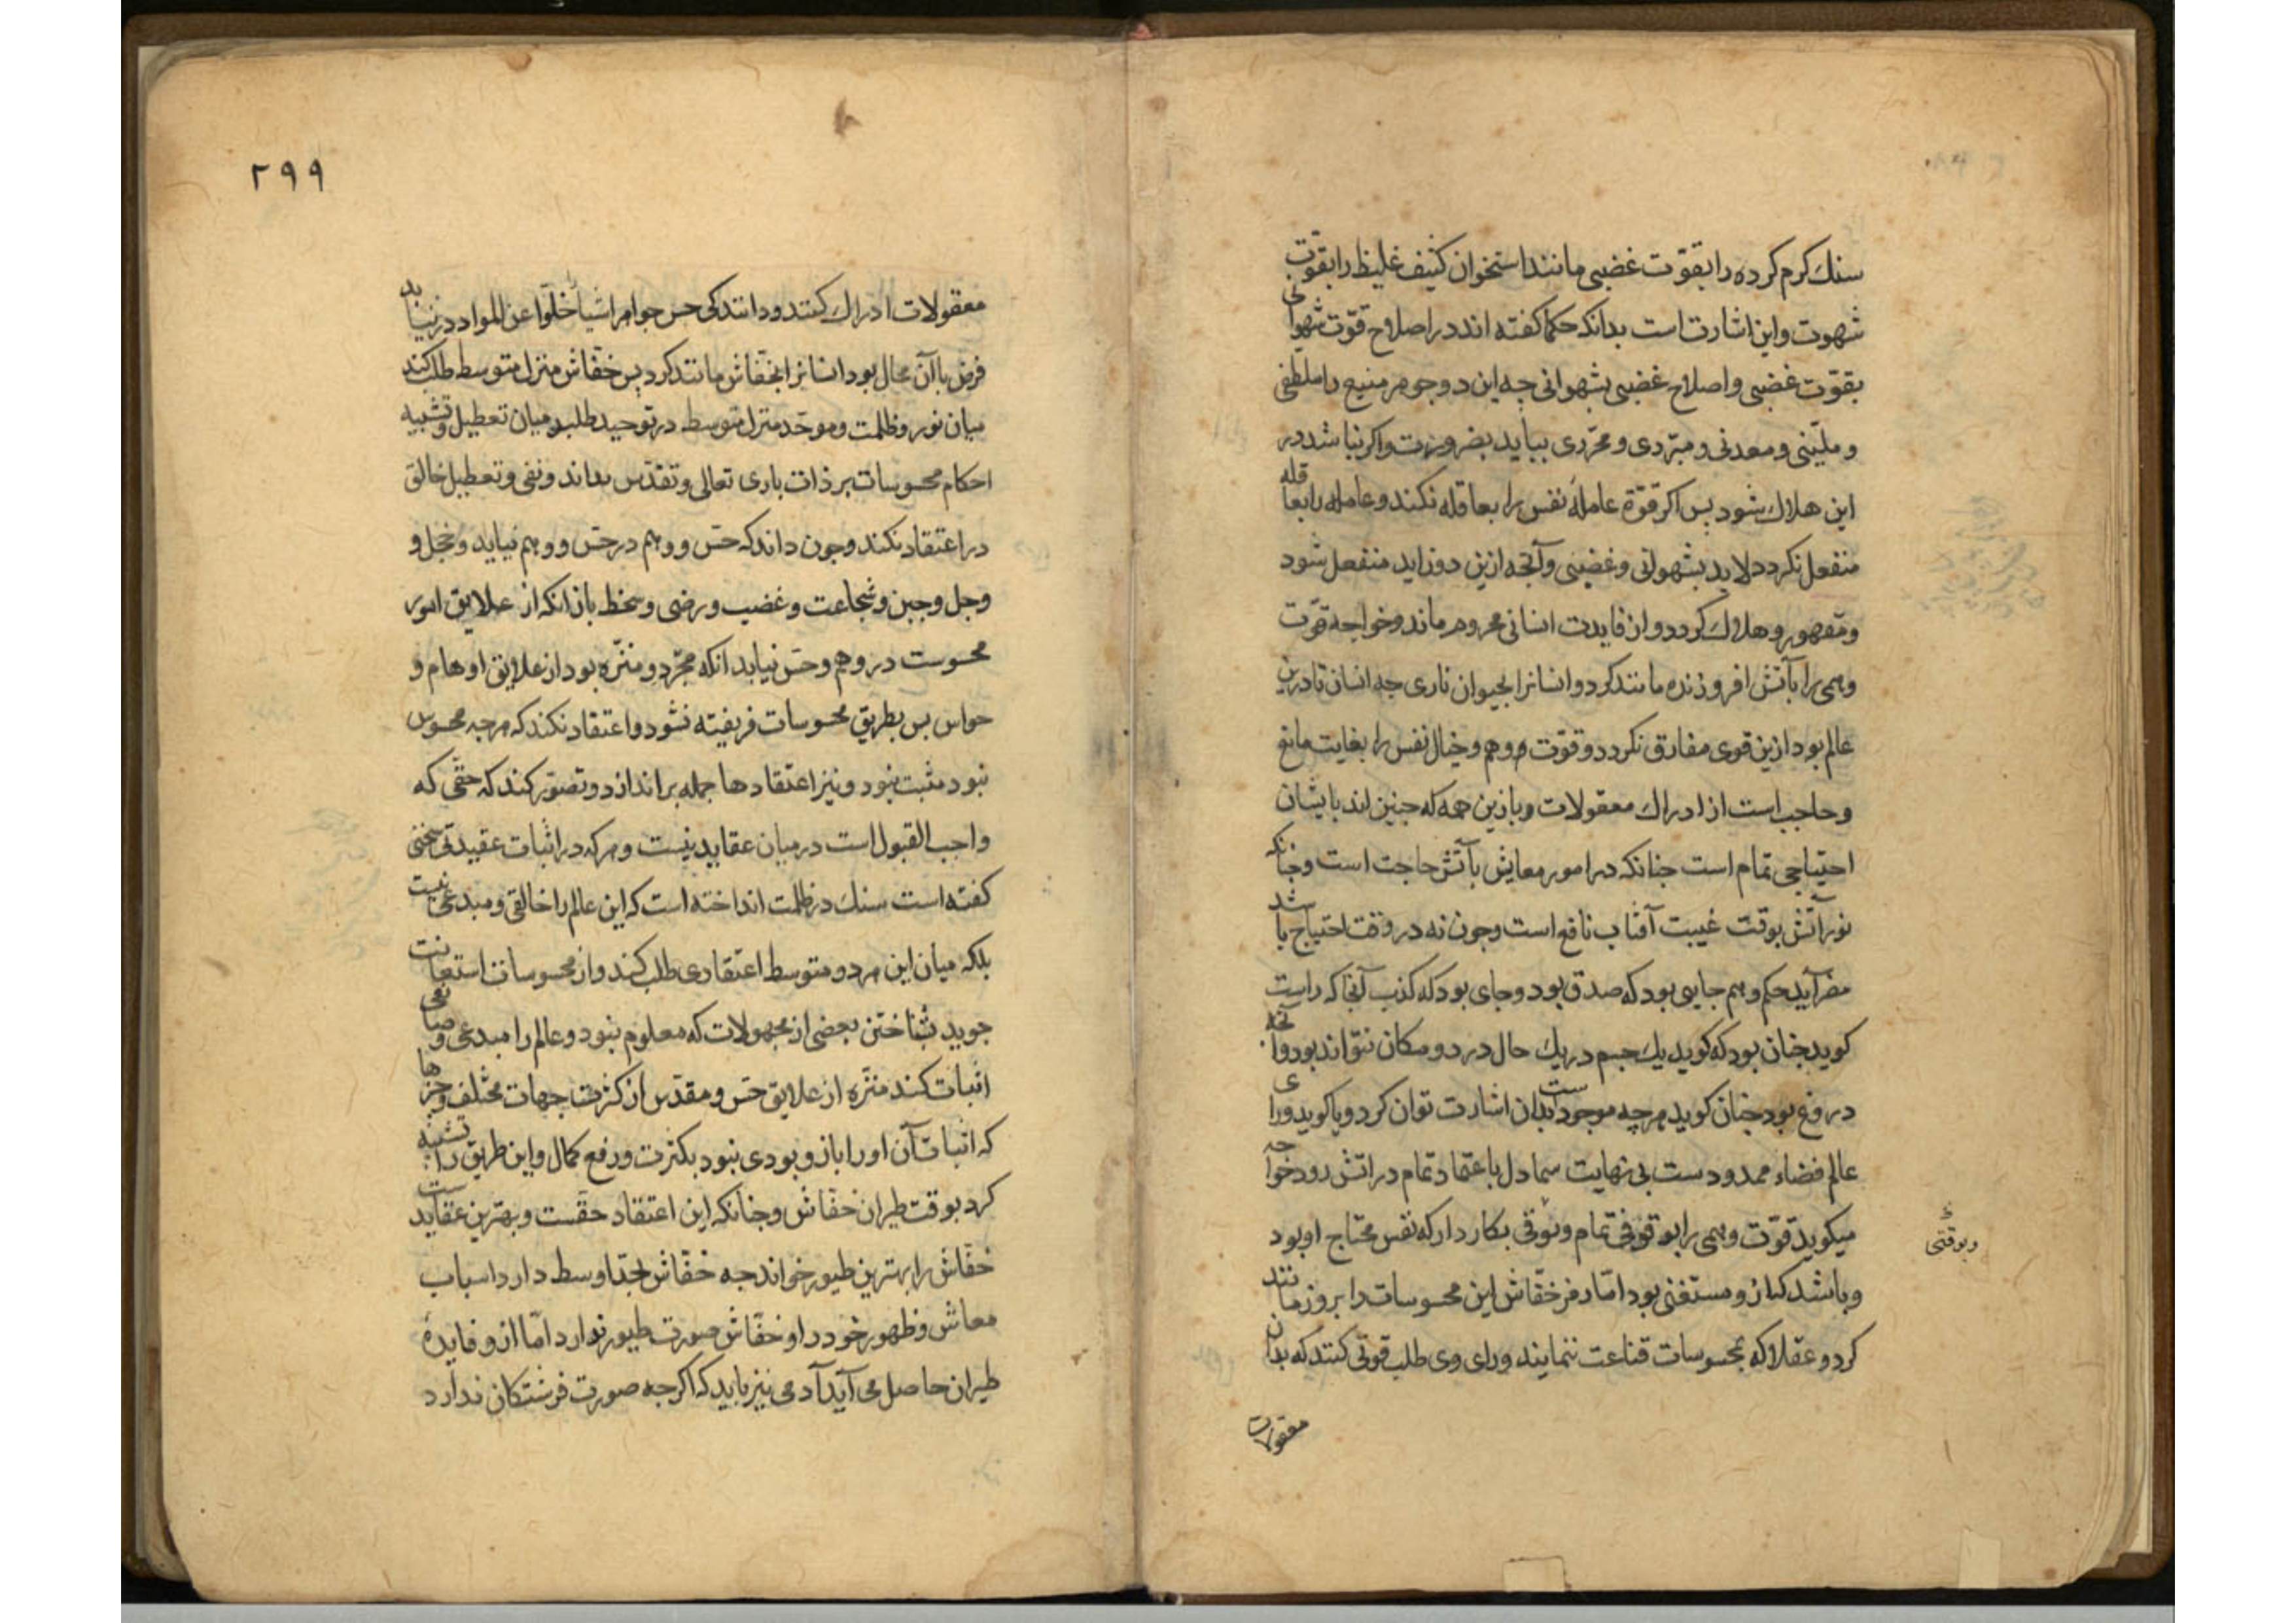 سنك كرم كرده را بقوّت غضبى مانند استخوان كثيف غليظ را بقوّت
شهوت واين اشارت است بدانكه حكما كفته اند در اصلاح قوّت شهوانى
بقوّت غضبى واصلاح غضبى بشهوانى چه اين دو جوهر منيع را ملطّفى
و مليّنى و معدنى و مبرّدى و محرّرى ببايد بضرورت واكر نباشد در
اين هلاك شود پس اكر قوّة عاملهٔ نفس را بعاقله نكند وعامله را بعاقله
منفعل نكردد لابد بشهوانى وغضبى وآنچه ازين دو زايد منفعل شود
ومقهور وهلاك كردد واز فايدت انسانى محروم ماند وخواجه قوّت
وهمى را بآتش افروزنده مانند كرد وانسانرا بحيوان نارى چه انسان تا درين
عالم بود ازين قوى مفارق نكردد وقوّت وهم وخيال نفس را بغايت مانع
وحاجب است از ادراك معقولات وبازين همه كه چنين اند بايشان
احتياجى تمام است چنانكه در امور معايش بآتش حاجت است وچنانكه
نور آتش بوقت غيبت آفتاب نافع است وچون نه در وقت احتياج باشد
مضر آيد حكم وهم جايى بود كه صدق بود وجاى بود كه كذب آنجا كه راست
كويد چنان بود كه كويد يك جسم در يك حال در دو مكان نتواند بود وآنجه
دروغ بود چنان كويد هرچه موجودست بدان اشارت توان كرد ويا كويد وراى
عالم فضاء ممدودست بى نهايت سما دل باعتماد تمام در آتش رود خواجه
ميكويد قوّت وهمى را بوقوفى تمام وبوقى بكار دار كه نفس محتاج او بود
وباشد كازو مستغنى بود امّا رمز خفّاش اين محسوسات را بروز مانند
كرد وعقلا كه بمحسوسات قناعت ننمايند وراى وى طلب قوتى كنند كه بدان
وبوقتى
معقولات
٢٩٩
معقولات ادراك كنند ودانند كى حس جواهر اشيأ خلّوا عن المواد در نيابد
فرض با آن محال بود انسانرا بخفّاش مانند كرد پس خفّاش منزل متوسط طلب كند
ميان نور وظلمت وموحّد منزل متوسط در توحيد طلبد ميان تعطيل وتشبيه
احكام محسوسات بر ذات بارى تعالى وتقدّس بداند ونفى وتعطيل خالق
در اعتقاد نكند وچون داند كه حسّ ووهم در حسّ ووهم نيايد وخجل و
وجل وجبن وشجاعت وغضب ورضى وسخط باز آنكه از علايق امور
محسوست در وهم وحسّ نيايد آنكه مجرّد ومنزّه بود از علايق اوهام و
حواس پس بطريق محسوسات فريفته نشود واعتقاد نكند كه هرچه محسوس
نبود مثبت نبود ونيز اعتقادها جمله براندازد وتصوّر كند كه حقّى كه
واجب القبول است در ميان عقايد نيست وهركه در اثبات عقيدتى سخنى
كفته است سنك در ظلمت انداخته است كه اين عالم را خالقى ومبدعى نيست
بلكه ميان اين هر دو متوسط اعتقادى طلب كند واز محسوسات استعانت
جويد شناختن بعضى از مجهولات كه معلوم نبود وعالم را مبدعى وصانعى
اثبات كند منزّه از علايق حسّ ومقدّس از كثرت جهات مختلف وچيزها
كه اثبات آن او را باز وبودى نبود بكثرت ورفع كمال واين طريق را تشبيه
كرد بوقت طيران خفّاش وچنانكه اين اعتقاد حقّست وبهترين عقايدست
خفّاش را بهترين طيور خواند چه خفّاش بحدّ اوسط دارد اسباب
معاش وظهور خود را وخفّاش صورت طيور ندارد امّا ازو فايدهٔ
طيران حاصل مى آيد آدمى نيز بايد كه اكرچه صورت فرشتكان ندارد